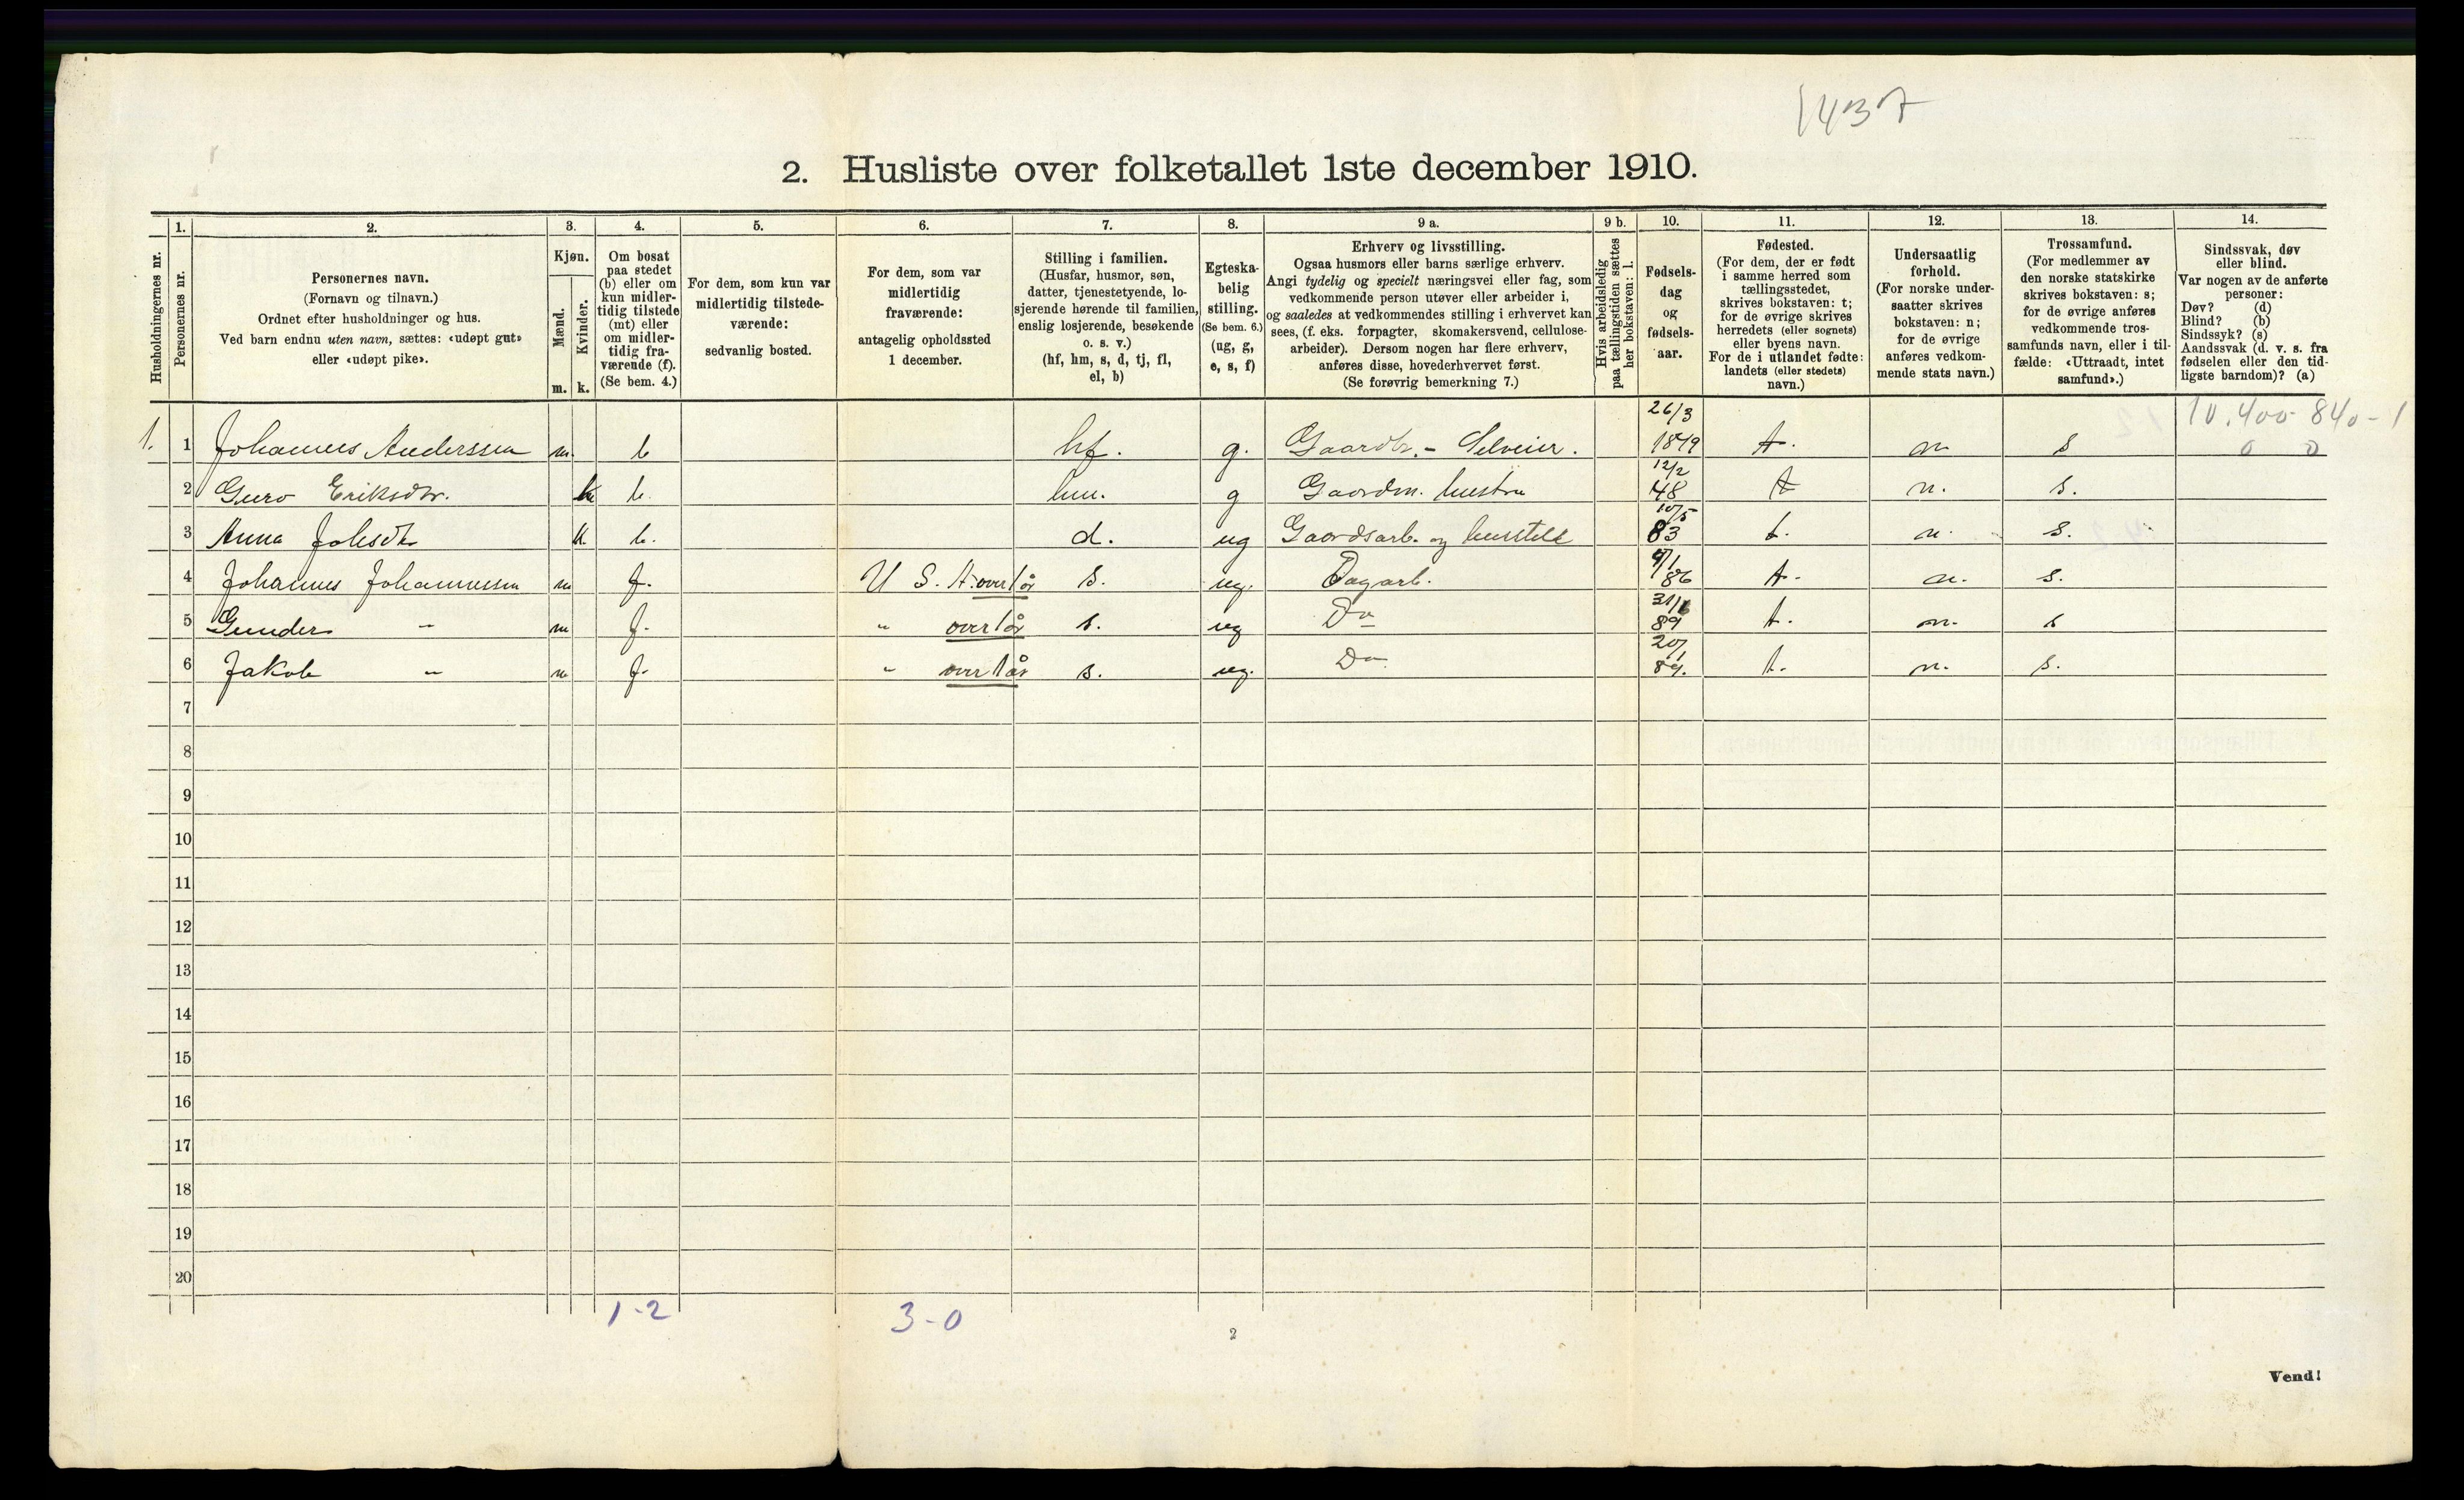 1437
2. Husliste over folketallet 1ste december 1910.
Husholdningernes nr.
1.
Personernes nr.
2.
Personernes navn.
(Fornavn og tilnavn.)
Ordnet efter husholdninger og hus.
Ved barn endnu uten navn, sættes: «udøpt gut»
eller «udøpt pike».
3.
Kjøn.
Mænd.
m.
Kvinder.
k.
4.
Om bosat
paa stedet
(b) eller om
kun midler-
tidig tilstede
(mt) eller
om midler-
tidig fra-
værende (f).
(Se bem. 4.)
5.
For dem, som kun var
midlertidig tilstede-
værende:
sedvanlig bosted.
6.
For dem, som var
midlertidig
fraværende:
antagelig opholdssted
1 december.
7.
Stilling i familien.
(Husfar, husmor, søn,
datter, tjenestetyende, lo-
sjerende hørende til familien,
enslig losjerende, besøkende
o. s. v.)
(hf, hm, s, d, tj, fl,
el, b)
8.
Egteska-
belig
stilling.
(Se bem. 6.)
(ug, g,
e, s, f)
9 a.
Erhverv og livsstilling.
Ogsaa husmors eller barns særlige erhverv.
Angi tydelig og specielt næringsvei eller fag, som
vedkommende person utøver eller arbeider i,
og saaledes at vedkommendes stilling i erhvervet kan
sees, (f. eks. forpagter, skomakersvend, cellulose-
arbeider). Dersom nogen har flere erhverv,
anføres disse, hovederhvervet først.
(Se forøvrig bemerkning 7.)
9 b.
Hvis arbeidsledig
paa tællingstiden sættes
her bokstaven: l.
10.
Fødsels-
dag
og
fødsels-
aar.
11.
Fødested.
(For dem, der er født
i samme herred som
tællingsstedet,
skrives bokstaven: t;
for de øvrige skrives
herredets (eller sognets)
eller byens navn.
For de i utlandet fødte:
landets (eller stedets)
navn.)
12.
Undersaatlig
forhold.
(For norske under-
saatter skrives
bokstaven: n;
for de øvrige
anføres vedkom-
mende stats navn.)
13.
Trossamfund.
(For medlemmer av
den norske statskirke
skrives bokstaven: s;
for de øvrige anføres
vedkommende tros-
samfunds navn, eller i til-
fælde: «Uttraadt, intet
samfund».)
14.
Sindssvak, døv
eller blind.
Var nogen av de anførte
personer:
Døv? (d)
Blind? (b)
Sindssyk? (s)
Aandssvak (d. v. s. fra
fødselen eller den tid-
ligste barndom)? (a)
10.400 - 840 - 1
0 0
1. 1 Johannes Anderssen m. b hf. g. Gaardbr. - Selveier. 26/3 1849 t. n s
2 Guro Eriksdtr. k b. hm. g Gaardm. hustru 12/2 48 t n. s.
3 Anna Johsdtr k. b. d. ug Gaardsarb. og husstell 10/5 83 t. n. s.
4 Johannes Johannessen m f. U S. A over 1 år s. ug. Dagarb. 86 t. n. s.
5 Gunder " m f. " over 1 år s. ug Do 89 t. n. s
6 Jakob " m f. " over 1 år s. ug. Do 20/1 t. n. s.
7
8
9
10
11
12
13
14
15
16
17
18
19
20
1-2
3-0
2
Vend!